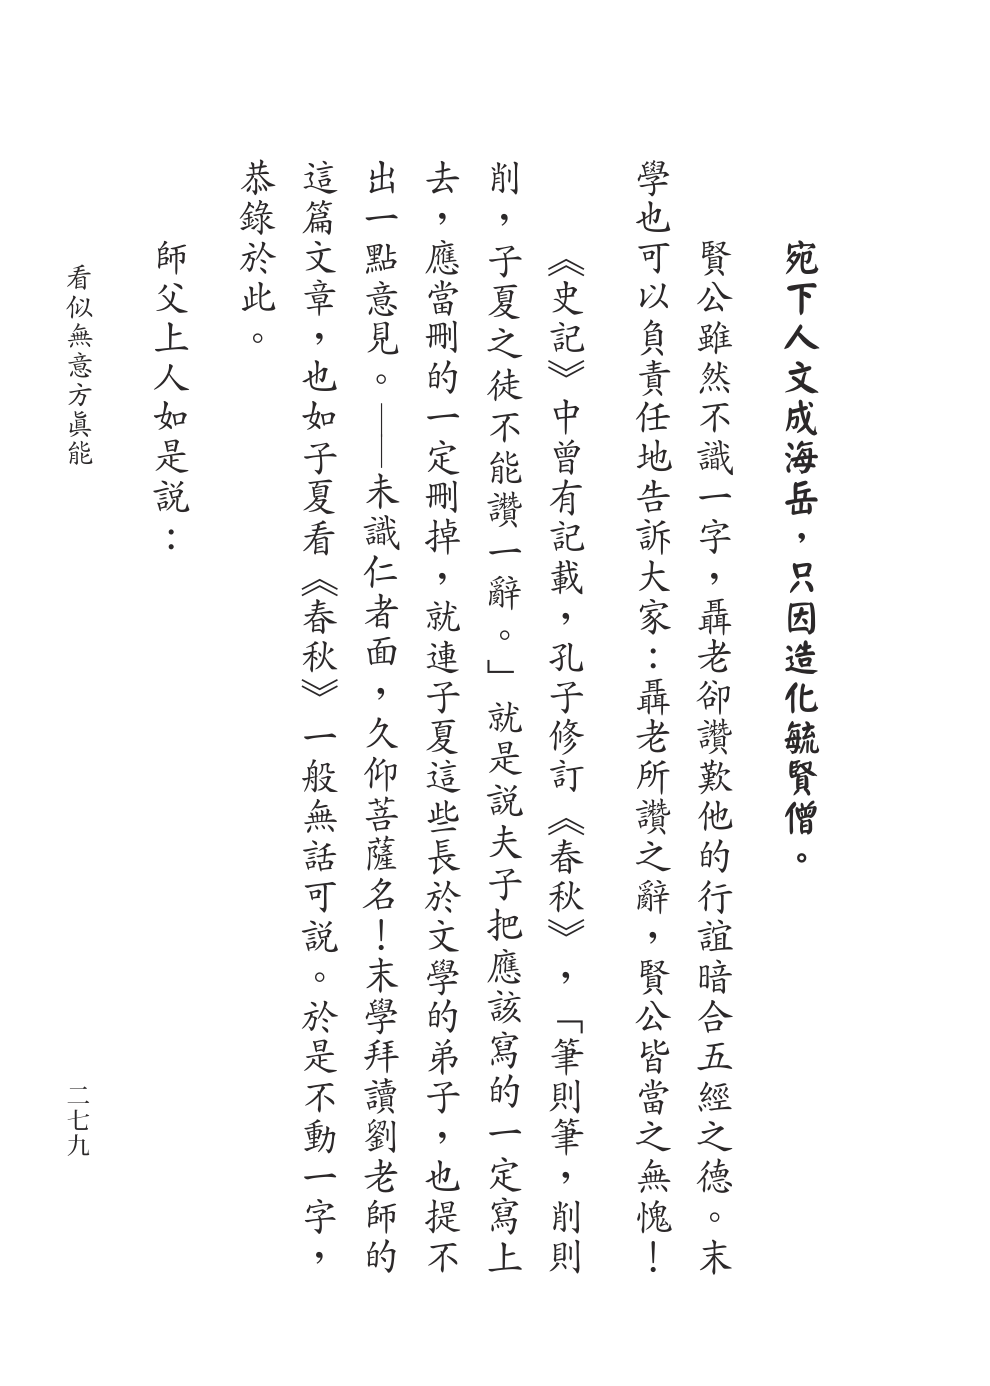 宛下人文成海岳，只因造化毓賢僧。
賢公雖然不識一字，聶老卻讚歎他的行誼暗合五經之德。末
學也可以負責任地告訴大家：聶老所讚之辭，賢公皆當之無愧！
《史記》中曾有記載，孔子修訂《春秋》，「筆則筆，削則
削，子夏之徒不能讚一辭。」就是説夫子把應該寫的一定寫上
去，應當刪的一定刪掉，就連子夏這些長於文學的弟子，也提不
出一點意見。——未識仁者面，久仰菩薩名！末學拜讀劉老師的
這篇文章，也如子夏看《春秋》一般無話可説。於是不動一字，
恭錄於此。
師父上人如是説：
看似無意方眞能
二七九